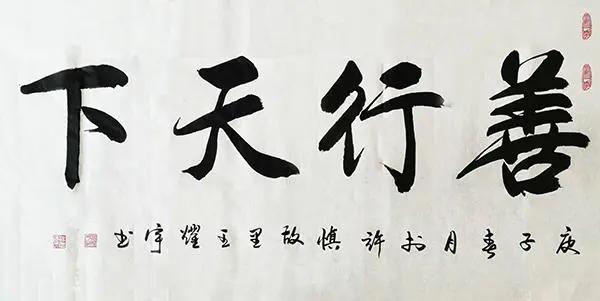 善行天下
庚子春月於許慎故里王耀宇书